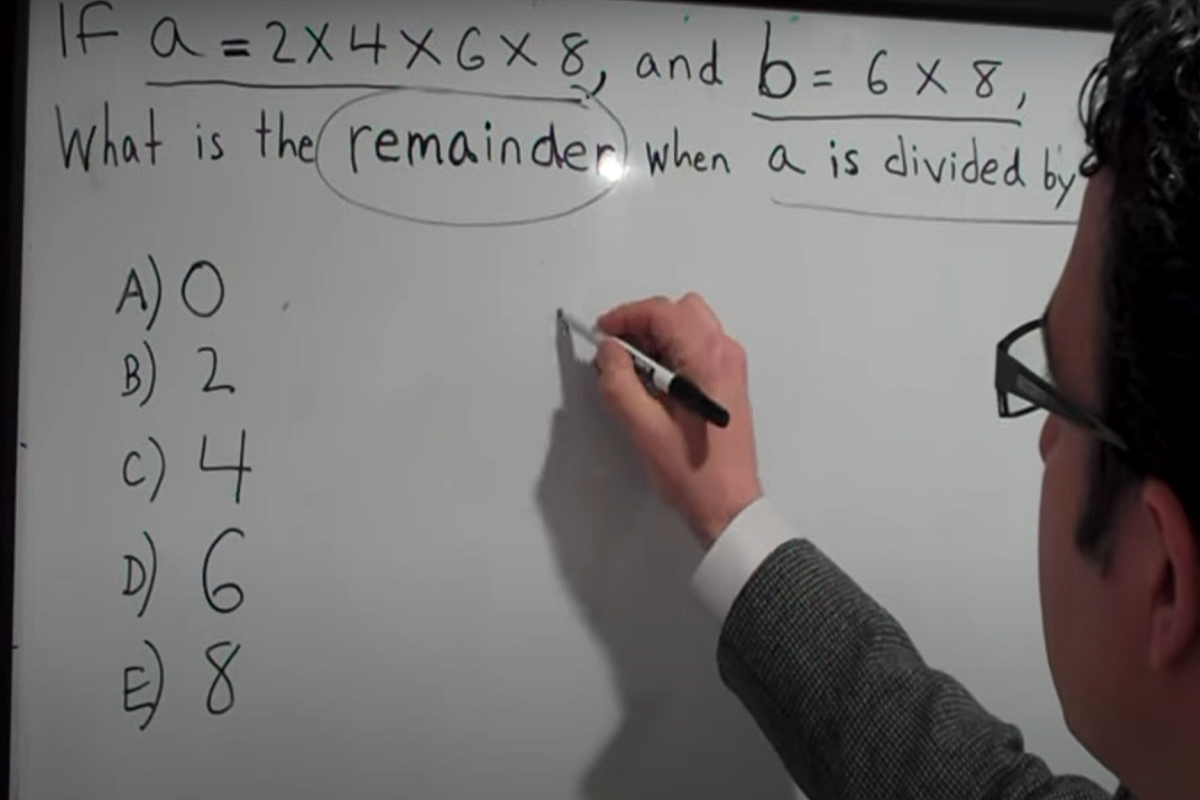 IF a = 2 X 4 X 6 X 8, and b = 6 X 8,
What is the remainder when a is divided by
A) 0
B) 2
C) 4
D) 6
E) 8